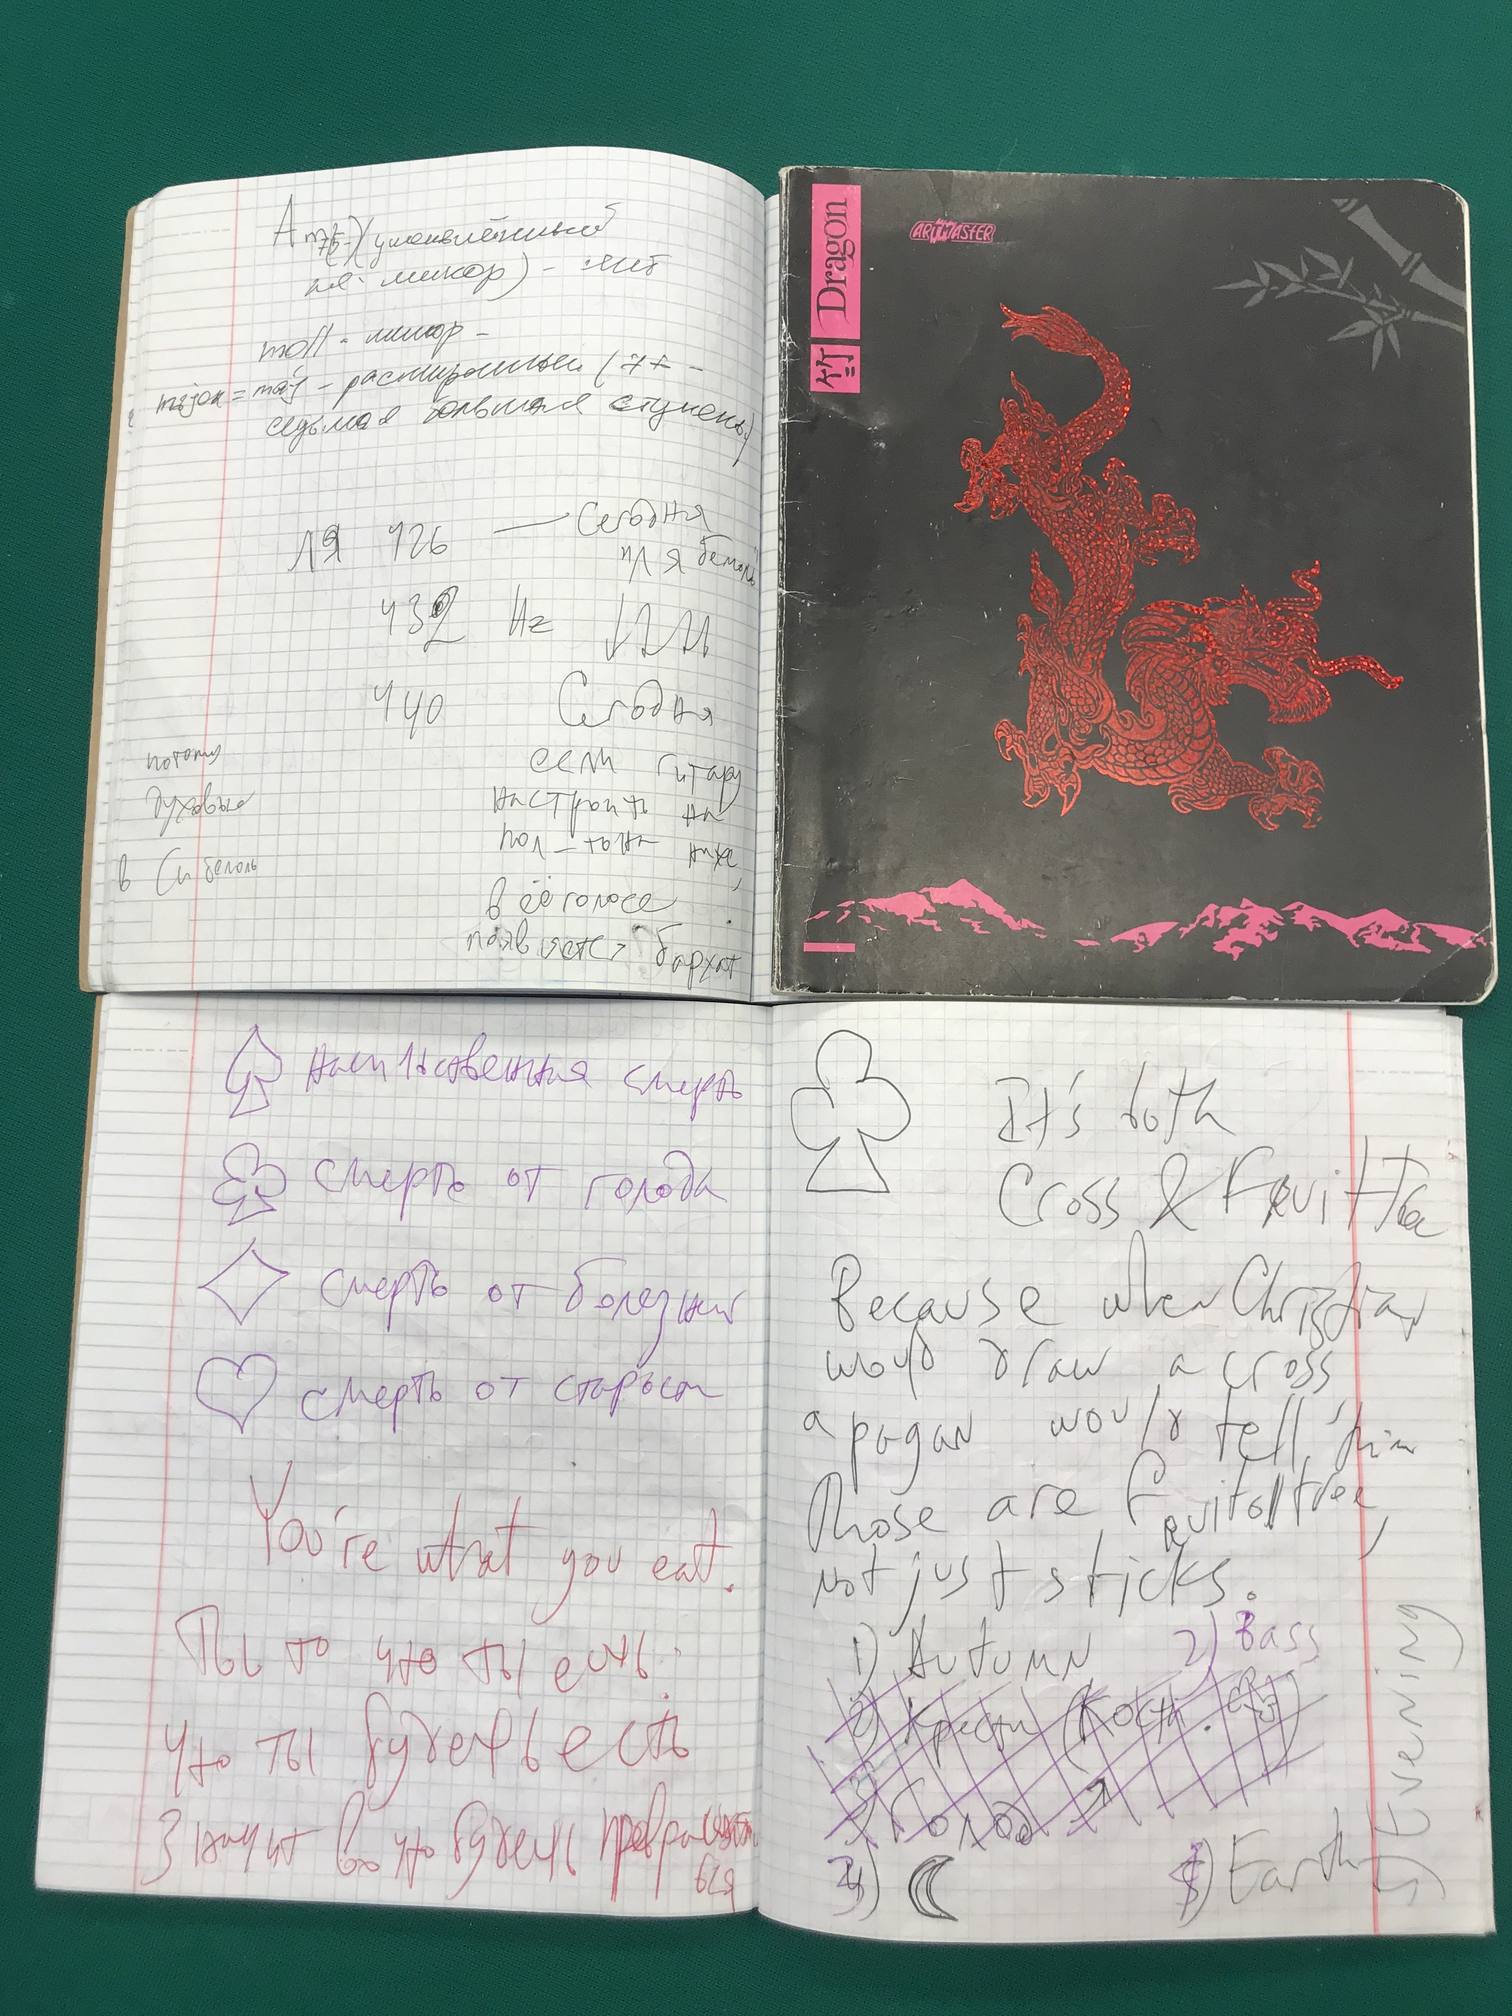 Am7/5-) (уменьшённый
ля минор) -
moll - минор -
major = maj - расширенный (7+ -
седьмая большая ступень)
ЛЯ 426 — Сегодня
ля бемоль
432 Hz
440 Сегодня
если гитару
настроить на
пол-тона ниже,
в её голосе
появляется бархат
потому
духовые
в Си бемоль
Dragon
竹
ARTMASTER
насильственная смерть
смерть от голода
смерть от болезни
смерть от старости
You're what you eat.
Ты то что ты ешь.
Что ты будешь есть
Значит во что будешь превращать
ся
It's both
Cross & Fruit Tree
Because when Christian
would draw a cross
a pagan would tell him
Those are fruitoftree,
not just sticks.
1) Autumn 2) Bass
2) Крести (Кости.
3) Голод
4) Earth
5) Evening